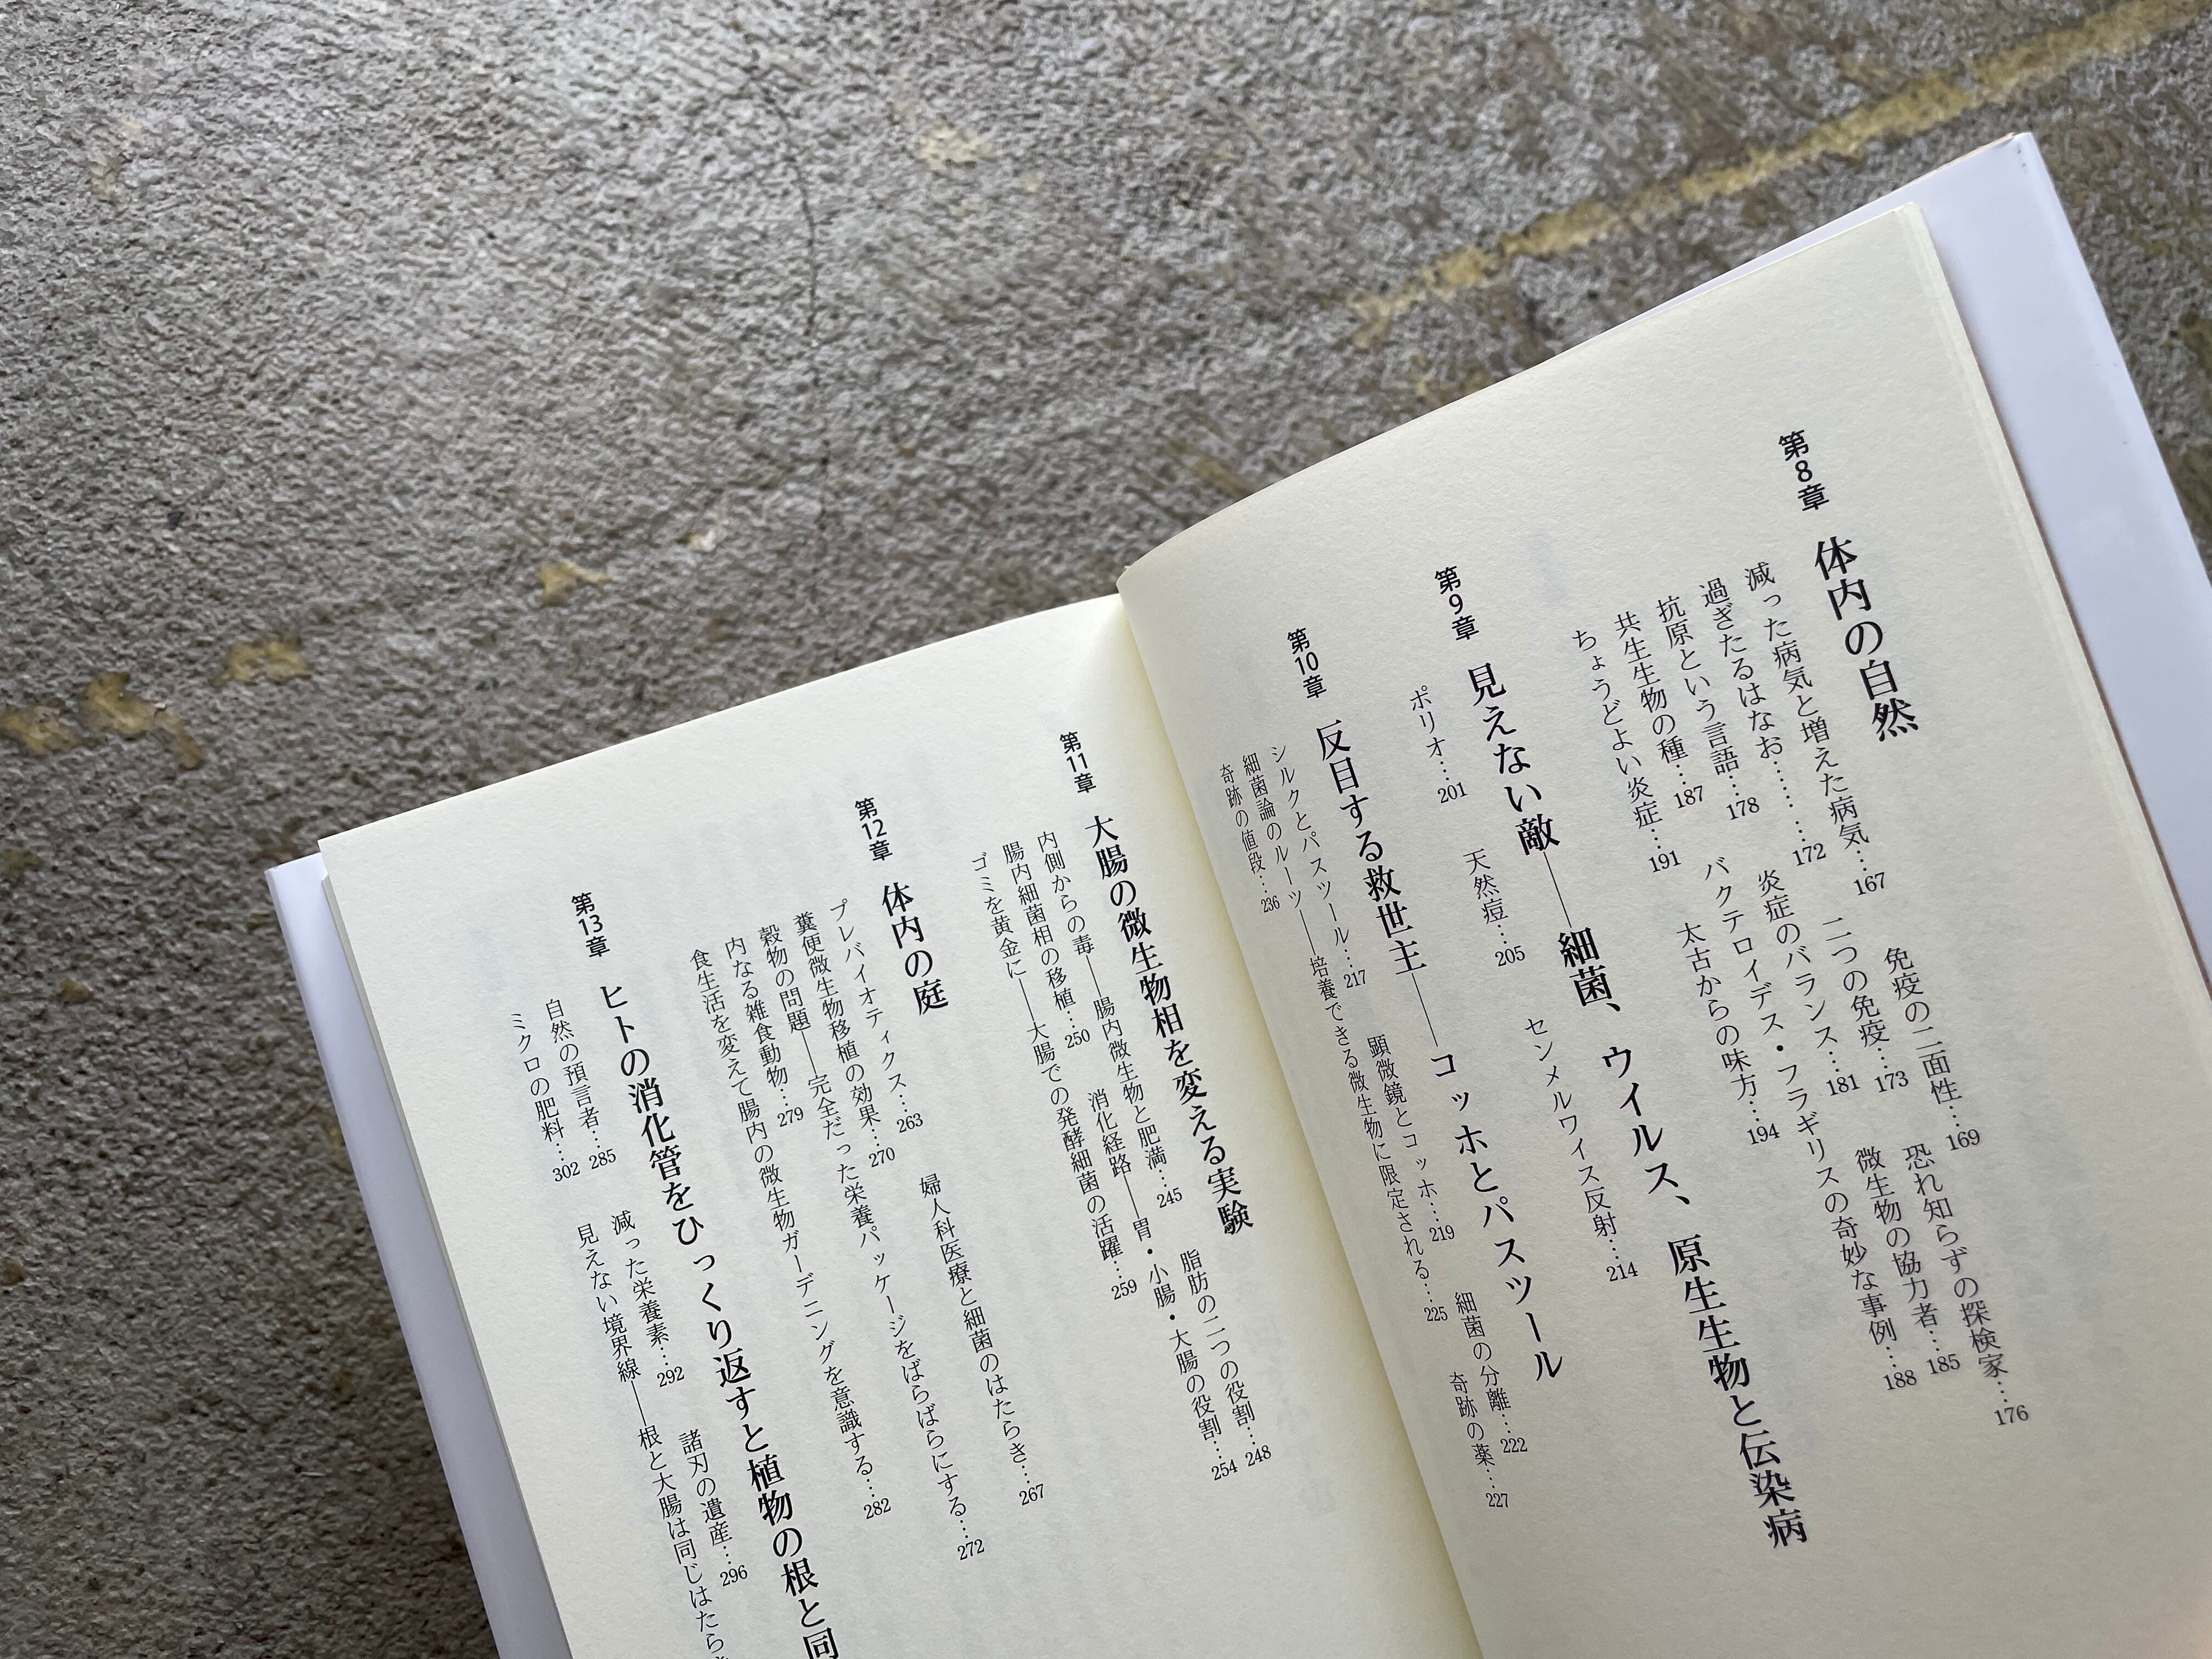 第8章 体内の自然
減った病気と増えた病気…167 免疫の二面性…169 恐れ知らずの探検家…176
過ぎたるはなお……172 二つの免疫…173 微生物の協力者…185
抗原という言語…178 炎症のバランス…181
共生生物の種…187 バクテロイデス・フラギリスの奇妙な事例…188
ちょうどよい炎症…191 太古からの味方…194
第9章 見えない敵――細菌、ウイルス、原生生物と伝染病
ポリオ…201 天然痘…205 センメルワイス反射…214
第10章 反目する救世主――コッホとパスツール
シルクとパスツール…217 顕微鏡とコッホ…219 細菌の分離…222
細菌論のルーツ――培養できる微生物に限定される…225 奇跡の薬…227
奇跡の値段…236
第11章 大腸の微生物相を変える実験
内側からの毒――腸内微生物と肥満…245 脂肪の二つの役割…248
腸内細菌相の移植…250 消化経路――胃・小腸・大腸の役割…254
ゴミを黄金に――大腸での発酵細菌の活躍…259
第12章 体内の庭
プレバイオティクス…263 婦人科医療と細菌のはたらき…267
糞便微生物移植の効果…270
穀物の問題――完全だった栄養パッケージをばらばらにする…272
内なる雑食動物…279
食生活を変えて腸内の微生物ガーデニングを意識する…282
第13章 ヒトの消化管をひっくり返すと植物の根と同
自然の預言者…285 減った栄養素…292 諸刃の遺産…296
ミクロの肥料…302 見えない境界線――根と大腸は同じはたら